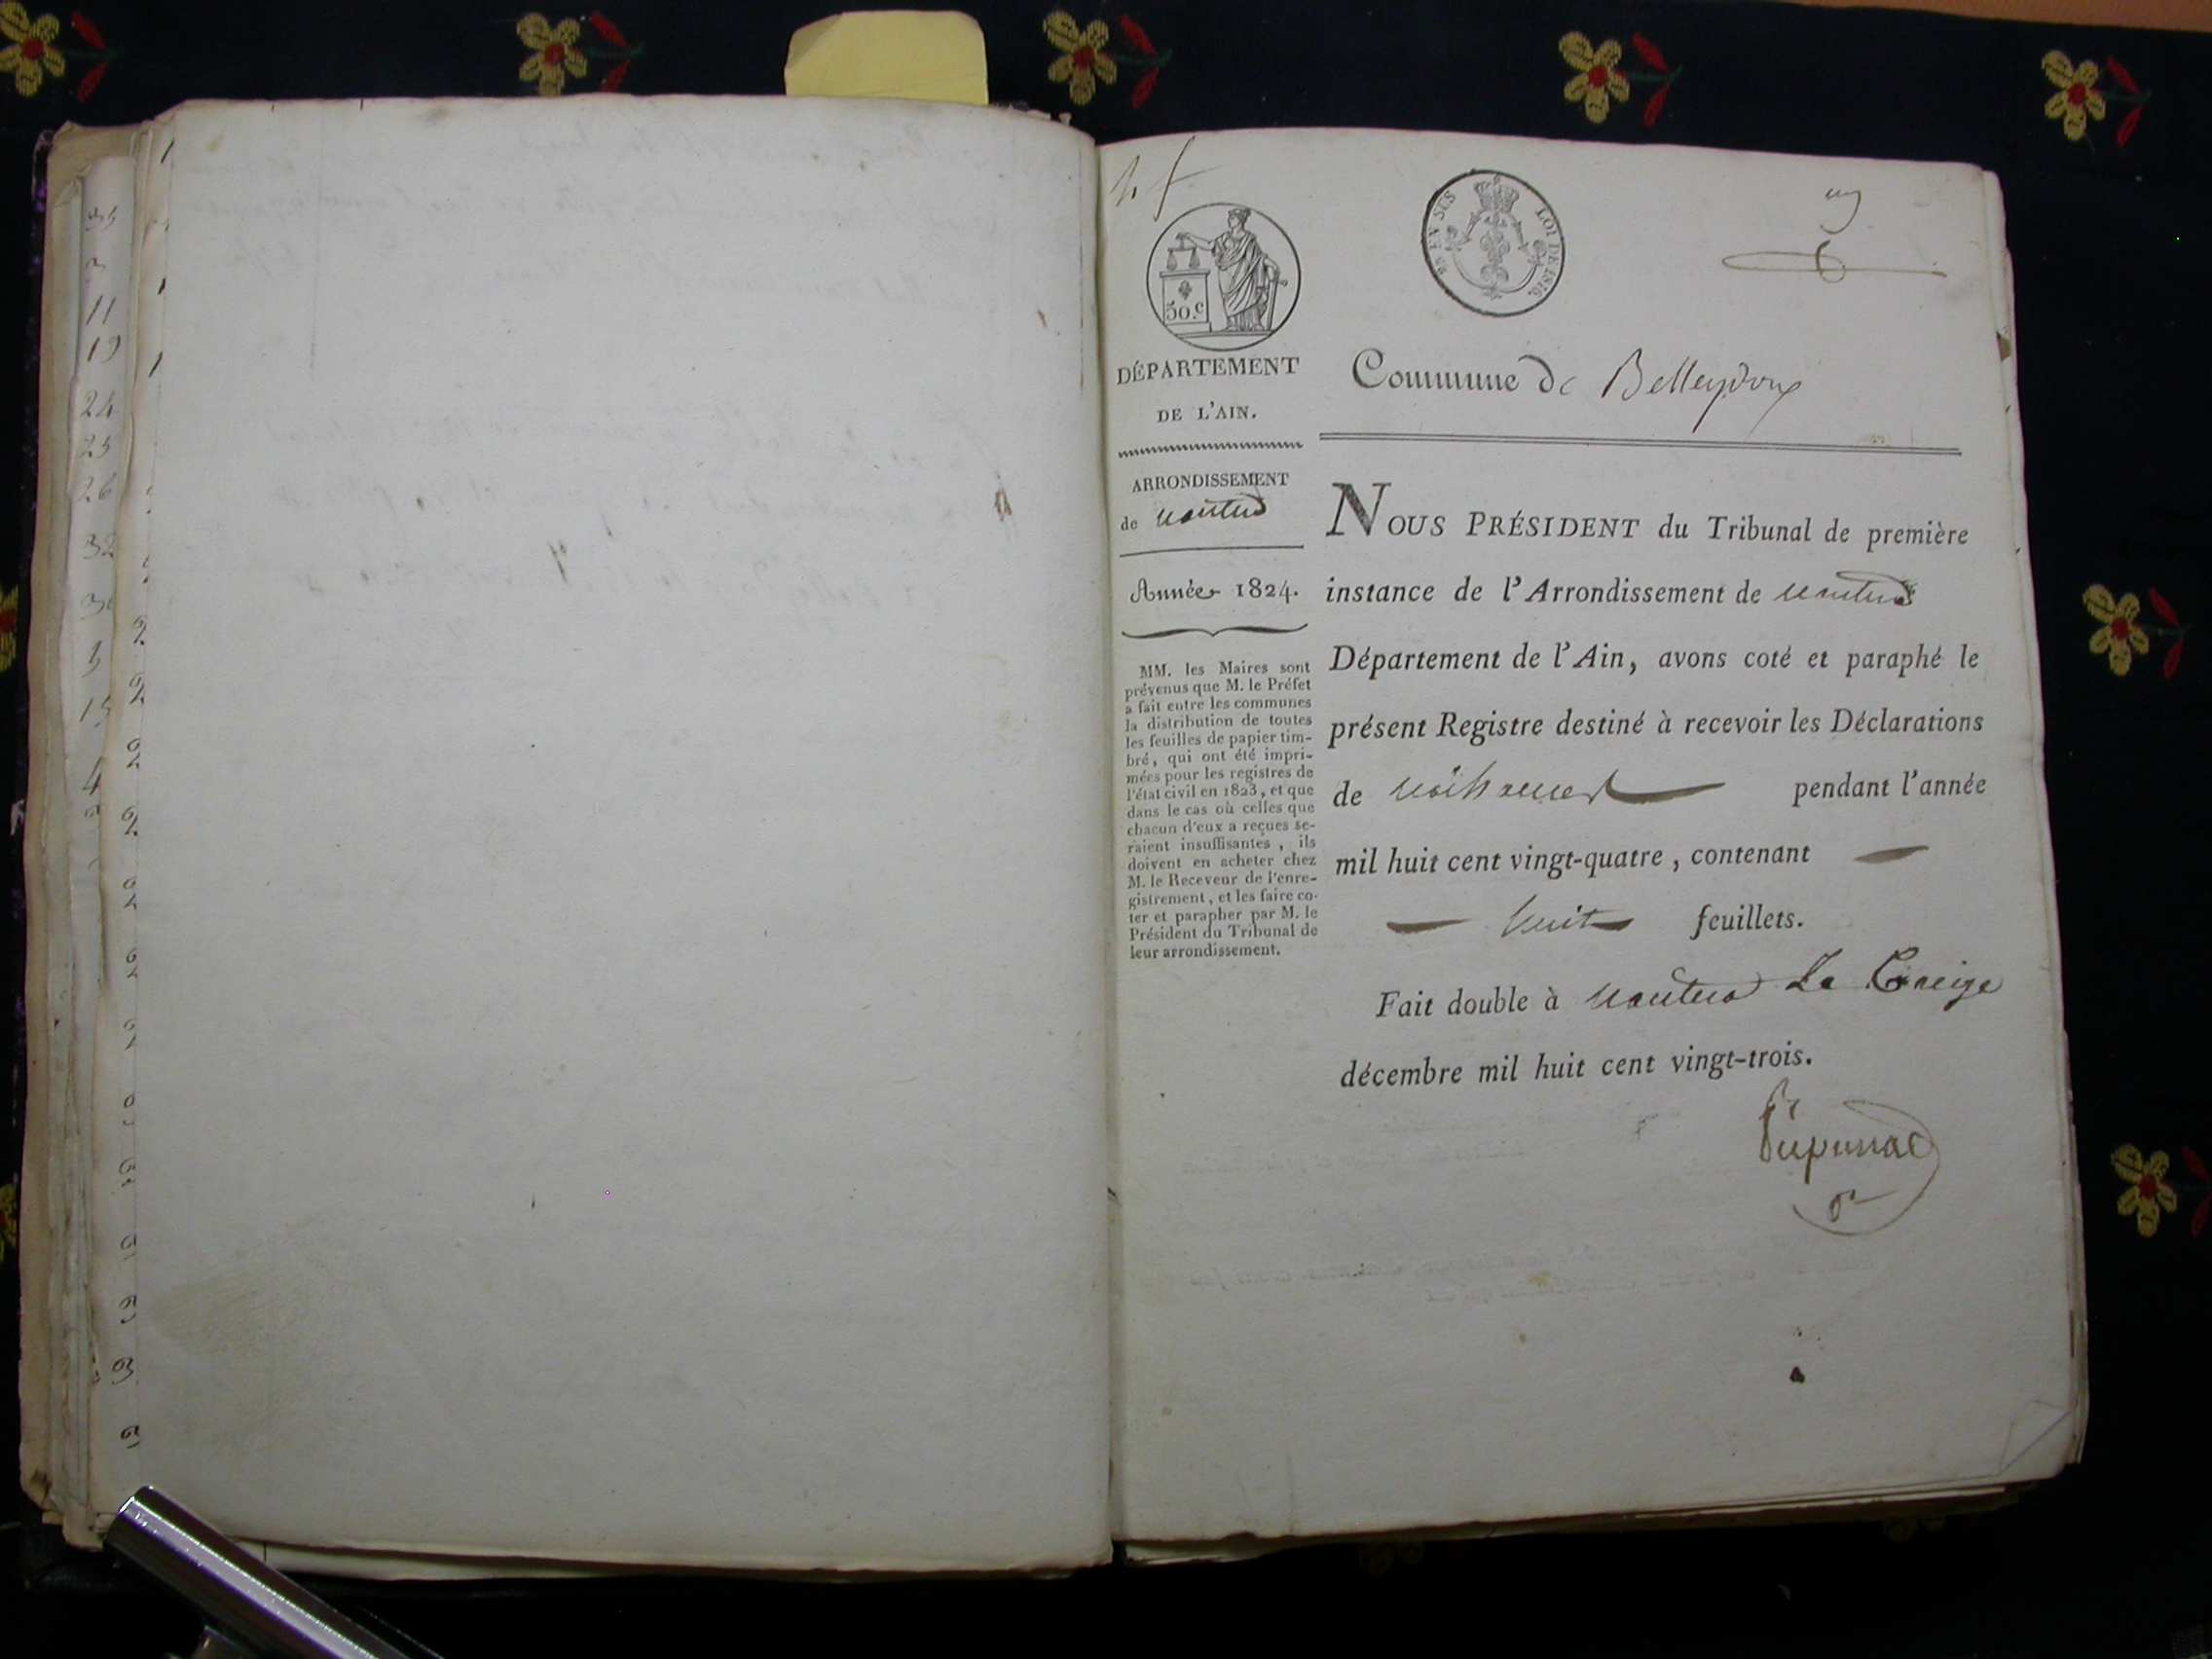 35
3
11
19
24
25
26
32
3
15
4
50.c
25 EN SUS
LOI DE 1816.
DÉPARTEMENT
DE L'AIN.
ARRONDISSEMENT
de Nantua
Année 1824.
MM. les Maires sont
prévenus que M. le Préfet
a fait entre les communes
la distribution de toutes
les feuilles de papier tim-
bré, qui ont été impri-
mées pour les registres de
l'état civil en 1823, et que
dans le cas où celles que
chacun d'eux a reçues se-
raient insuffisantes, ils
doivent en acheter chez
M. le Receveur de l'enre-
gistrement, et les faire co-
ter et parapher par M. le
Président du Tribunal de
leur arrondissement.
Commune de Belleydoux
NOUS PRÉSIDENT du Tribunal de première
instance de l'Arrondissement de Nantua
Département de l'Ain, avons coté et paraphé le
présent Registre destiné à recevoir les Déclarations
de naissances pendant l'année
mil huit cent vingt-quatre, contenant
huit feuillets.
Fait double à Nantua Le
décembre mil huit cent vingt-trois.